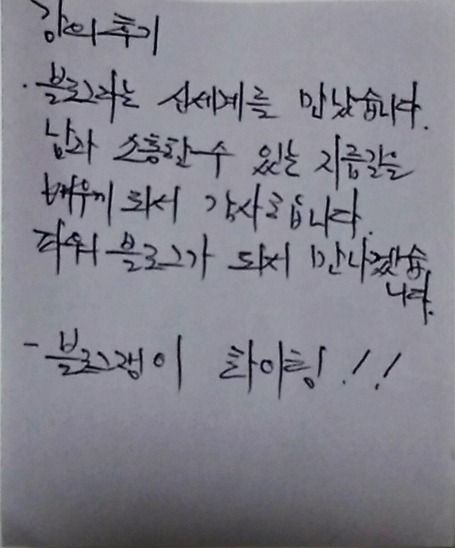 강의후기
. 블로그라는 신세계를 만났습니다.
남과 소통할 수 있는 지름길을
배우게 되서 감사드립니다.
파워블로그가 되서 만나겠습
니다.
- 블로그쟁이 화이팅!!